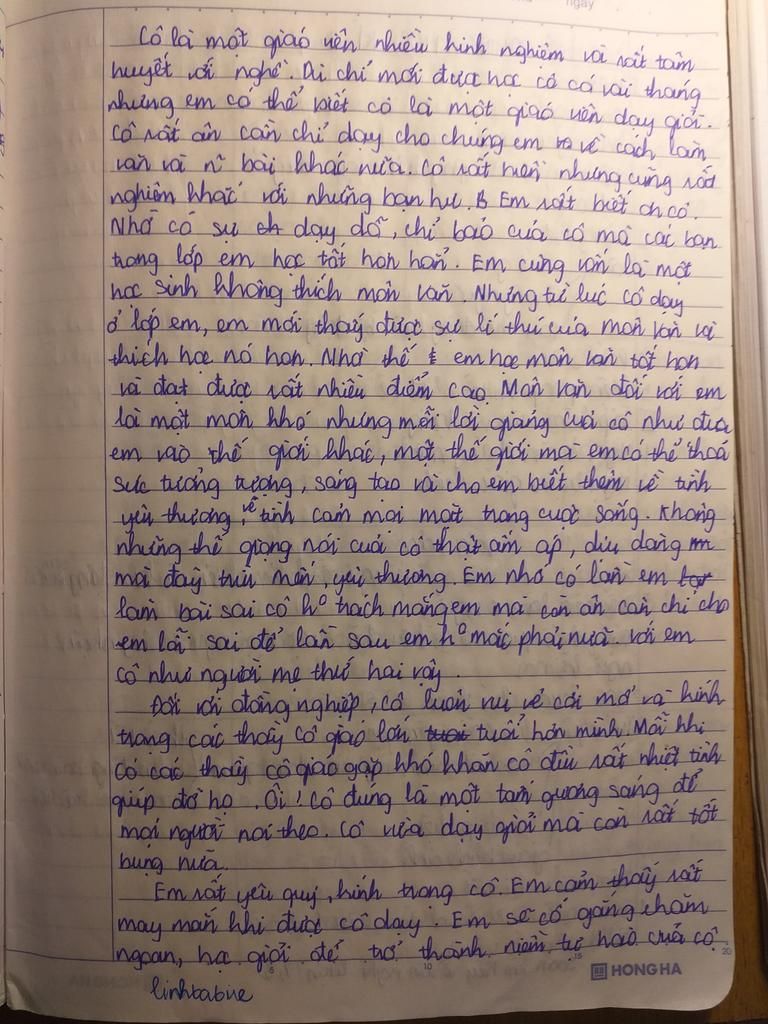 ngày
Cô là một giáo viên nhiều kinh nghiệm và rất tâm
huyết với nghề. Dù chỉ mới được học cô có vài tháng
nhưng em có thể biết cô là một giáo viên dạy giỏi.
Cô rất ân cần chỉ dạy cho chúng em về cách làm
văn và nhiều bài khác nữa. Cô rất hiền nhưng cũng rất
nghiêm khắc với những bạn hư. Em rất biết ơn cô.
Nhờ có sự dạy dỗ, chỉ bảo của cô mà các bạn
trong lớp em học tốt hơn hẳn. Em cũng vốn là một
học sinh không thích môn văn. Nhưng từ lúc cô dạy
ở lớp em, em mới thấy được sự lí thú của môn văn và
thích học nó hơn. Nhờ thế em học môn văn tốt hơn
và đạt được rất nhiều điểm cao. Môn văn đối với em
là một môn khó nhưng mỗi lời giảng của cô như đưa
em vào thế giới khác, một thế giới mà em có thể thoả
sức tưởng tượng, sáng tạo và cho em biết thêm về tình
yêu thương, về tình cảm mọi mặt trong cuộc sống. Không
những thế giọng nói của cô thật ấm áp, dịu dàng
mà đầy trìu mến, yêu thương. Em nhớ có lần em
làm bài sai cô h⁰ trách mắng em mà còn ân cần chỉ cho
em lỗi sai để lần sau em h⁰ mắc phải nữa. Với em
cô như người mẹ thứ hai vậy.
Đối với đồng nghiệp, cô luôn vui vẻ cởi mở và kính
trọng các thầy cô giáo lớn tuổi hơn mình. Mỗi khi
có các thầy cô giáo gặp khó khăn cô đều rất nhiệt tình
giúp đỡ họ. Ôi! Cô đúng là một tấm gương sáng để
mọi người noi theo. Cô vừa dạy giỏi mà còn rất tốt
bụng nữa.
Em rất yêu quý, kính trọng cô. Em cảm thấy rất
may mắn khi được cô dạy. Em sẽ cố gắng chăm
ngoan, học giỏi để trở thành niềm tự hào của cô
5 10 15 20
HONG HA
linhbabie